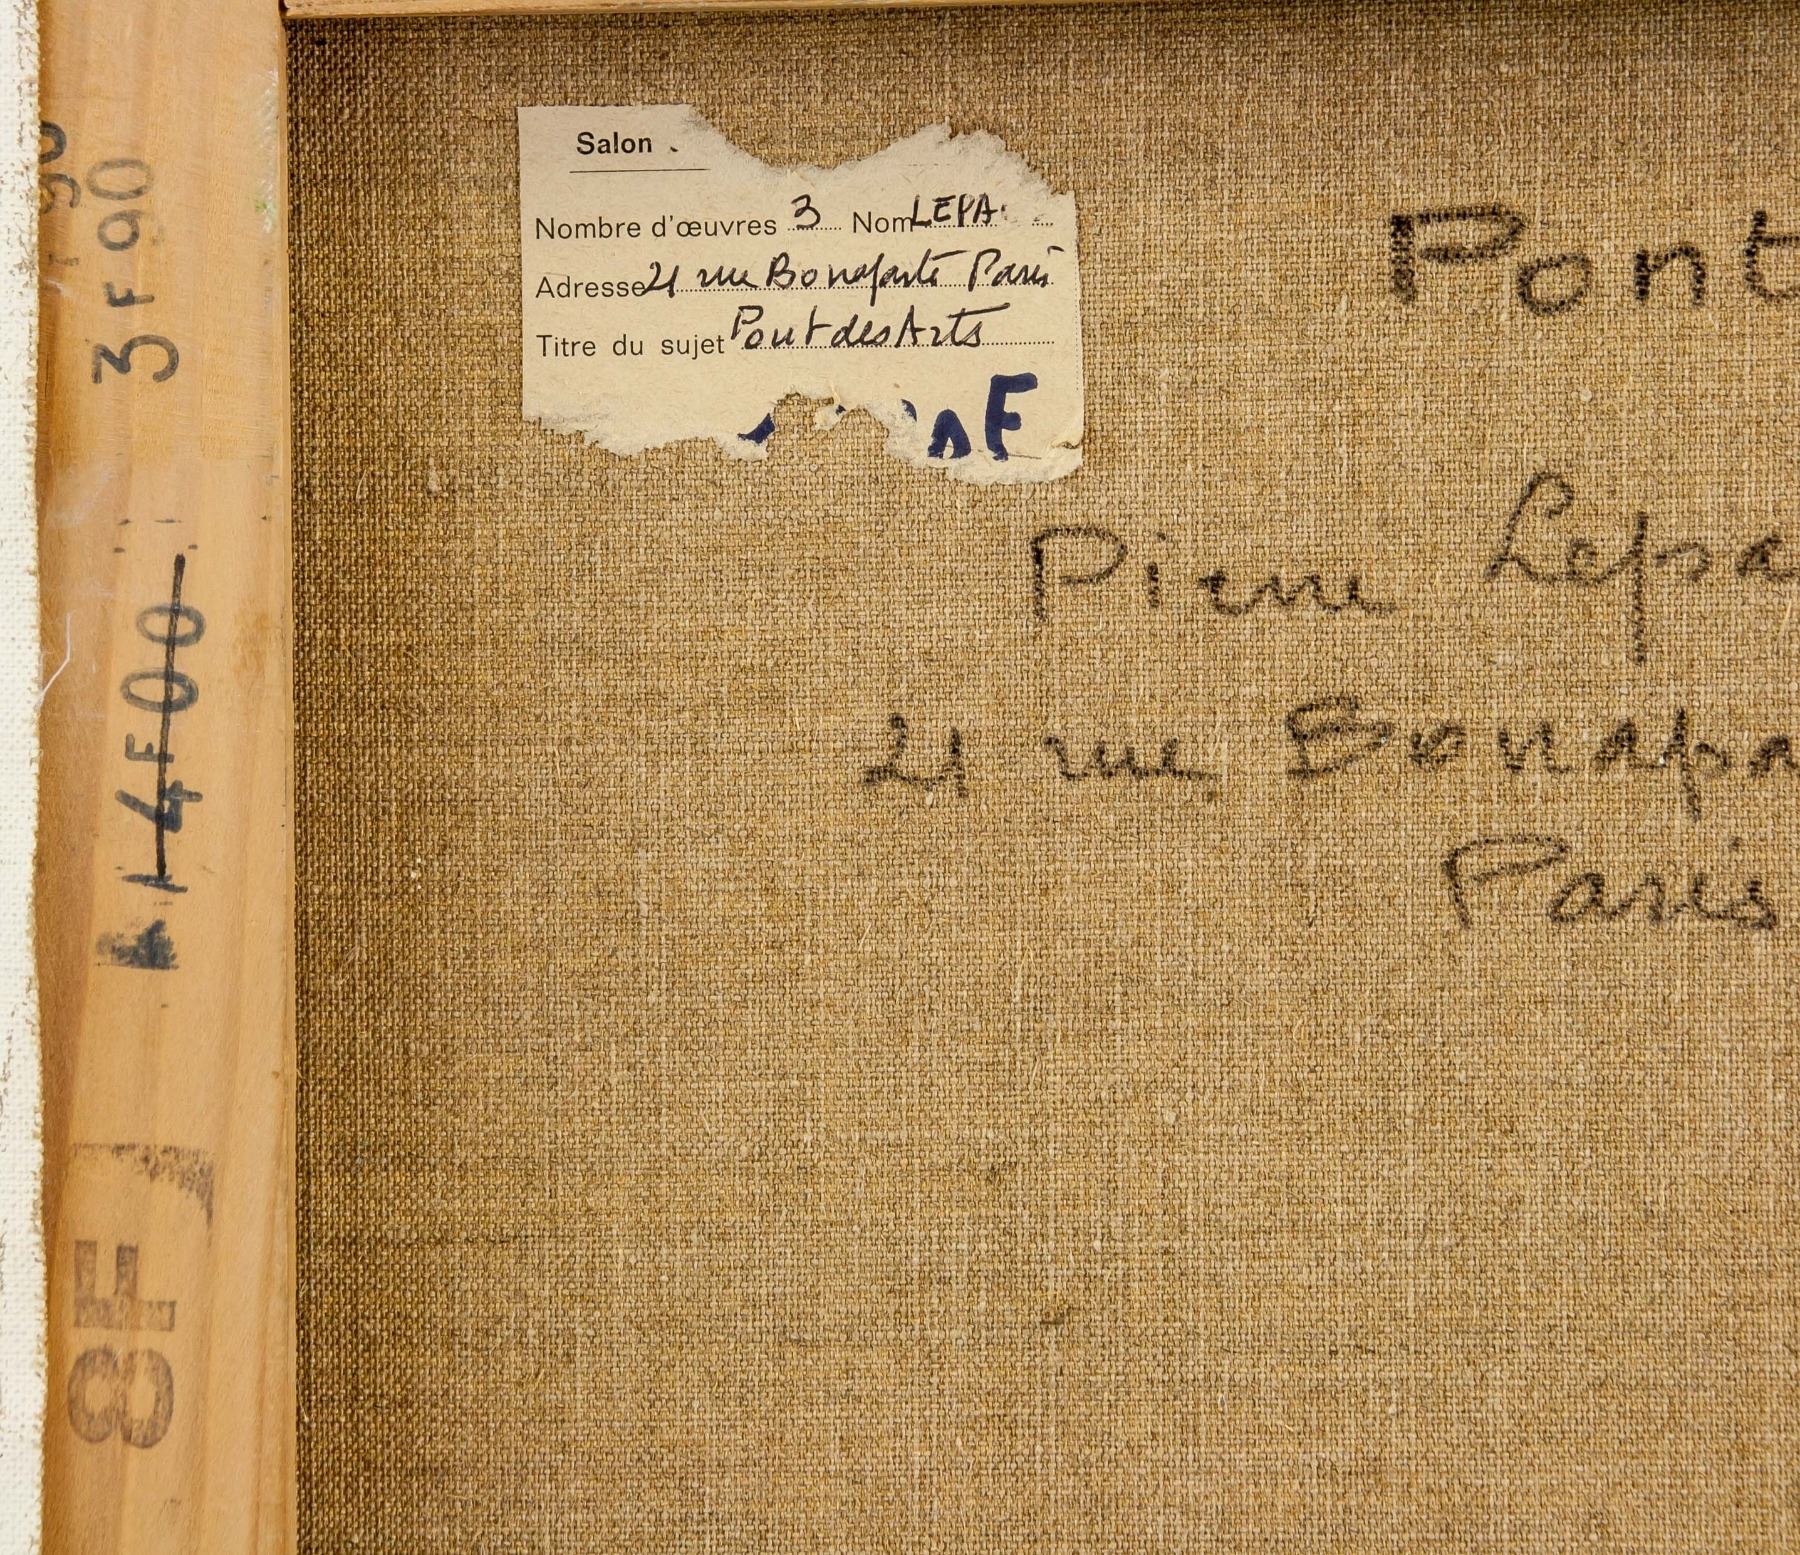 Salon
Nombre d'œuvres 3 Nom LEPA
Adresse 21 rue Bonaparte Paris
Titre du sujet Pont des Arts
F
Pont
Pierre Lepa
21 rue Bonapa
Paris
3 F 90
14F00
8F